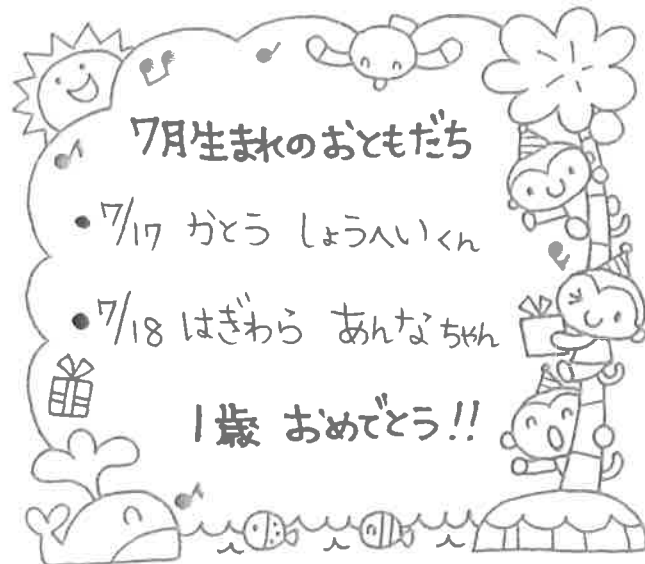 7月生まれのおともだち
・7/17 かとう しょうへいくん
・7/18 はぎわら あんなちゃん
1歳 おめでとう!!